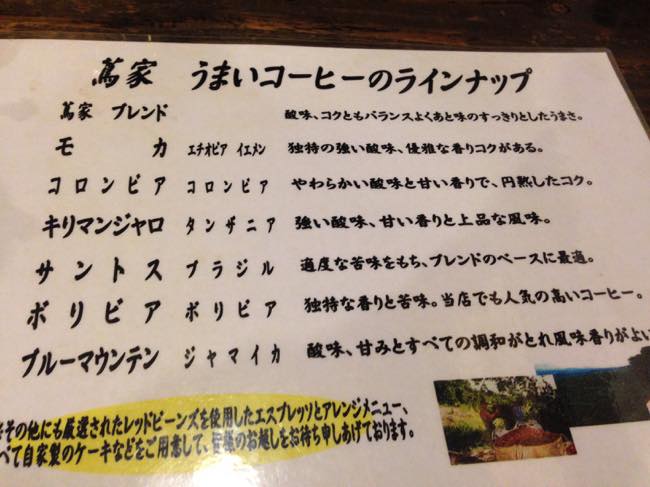 蔦家 うまいコーヒーのラインナップ
蔦家 ブレンド 酸味、コクともバランスよくあと味のすっきりとしたうまさ。
モカ エチオピア イエメン 独特の強い酸味、優雅な香りコクがある。
コロンビア コロンビア やわらかい酸味と甘い香りで、円熟したコク。
キリマンジャロ タンザニア 強い酸味、甘い香りと上品な風味。
サントス ブラジル 適度な苦味をもち、ブレンドのベースに最適。
ボリビア ボリビア 独特な香りと苦味。当店でも人気の高いコーヒー。
ブルーマウンテン ジャマイカ 酸味、甘みとすべての調和がとれ風味香りがよい
その他にも厳選されたレッドビーンズを使用したエスプレッソとアレンジメニュー、
べて自家製のケーキなどをご用意して、皆様のお越しをお待ち申しあげております。